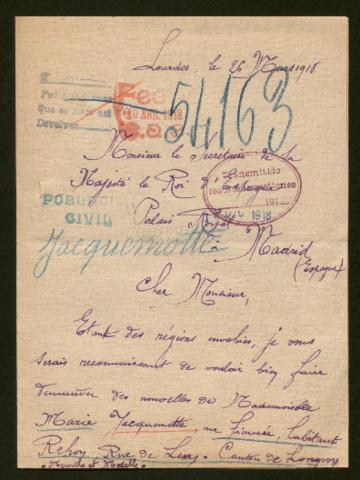 Lourdes, le 26 Mars 1918
54163
10 ABR. 1918
Devolver
Monsieur le Secrétaire de la
Majesté le Roi d'Espagne
Transmitido
191
1918
Palais Royal
CIVIL
à
Madrid
Jacquemotte
(Espagne)
Cher Monsieur,
Etant des régions envahies, je vous
serais reconnaissant de vouloir bien faire
demander des nouvelles de Mademoiselle
Marie Jacquemotte, habitant
Rehon, Rue de Lexy - Canton de Longwy
Meurthe et Moselle